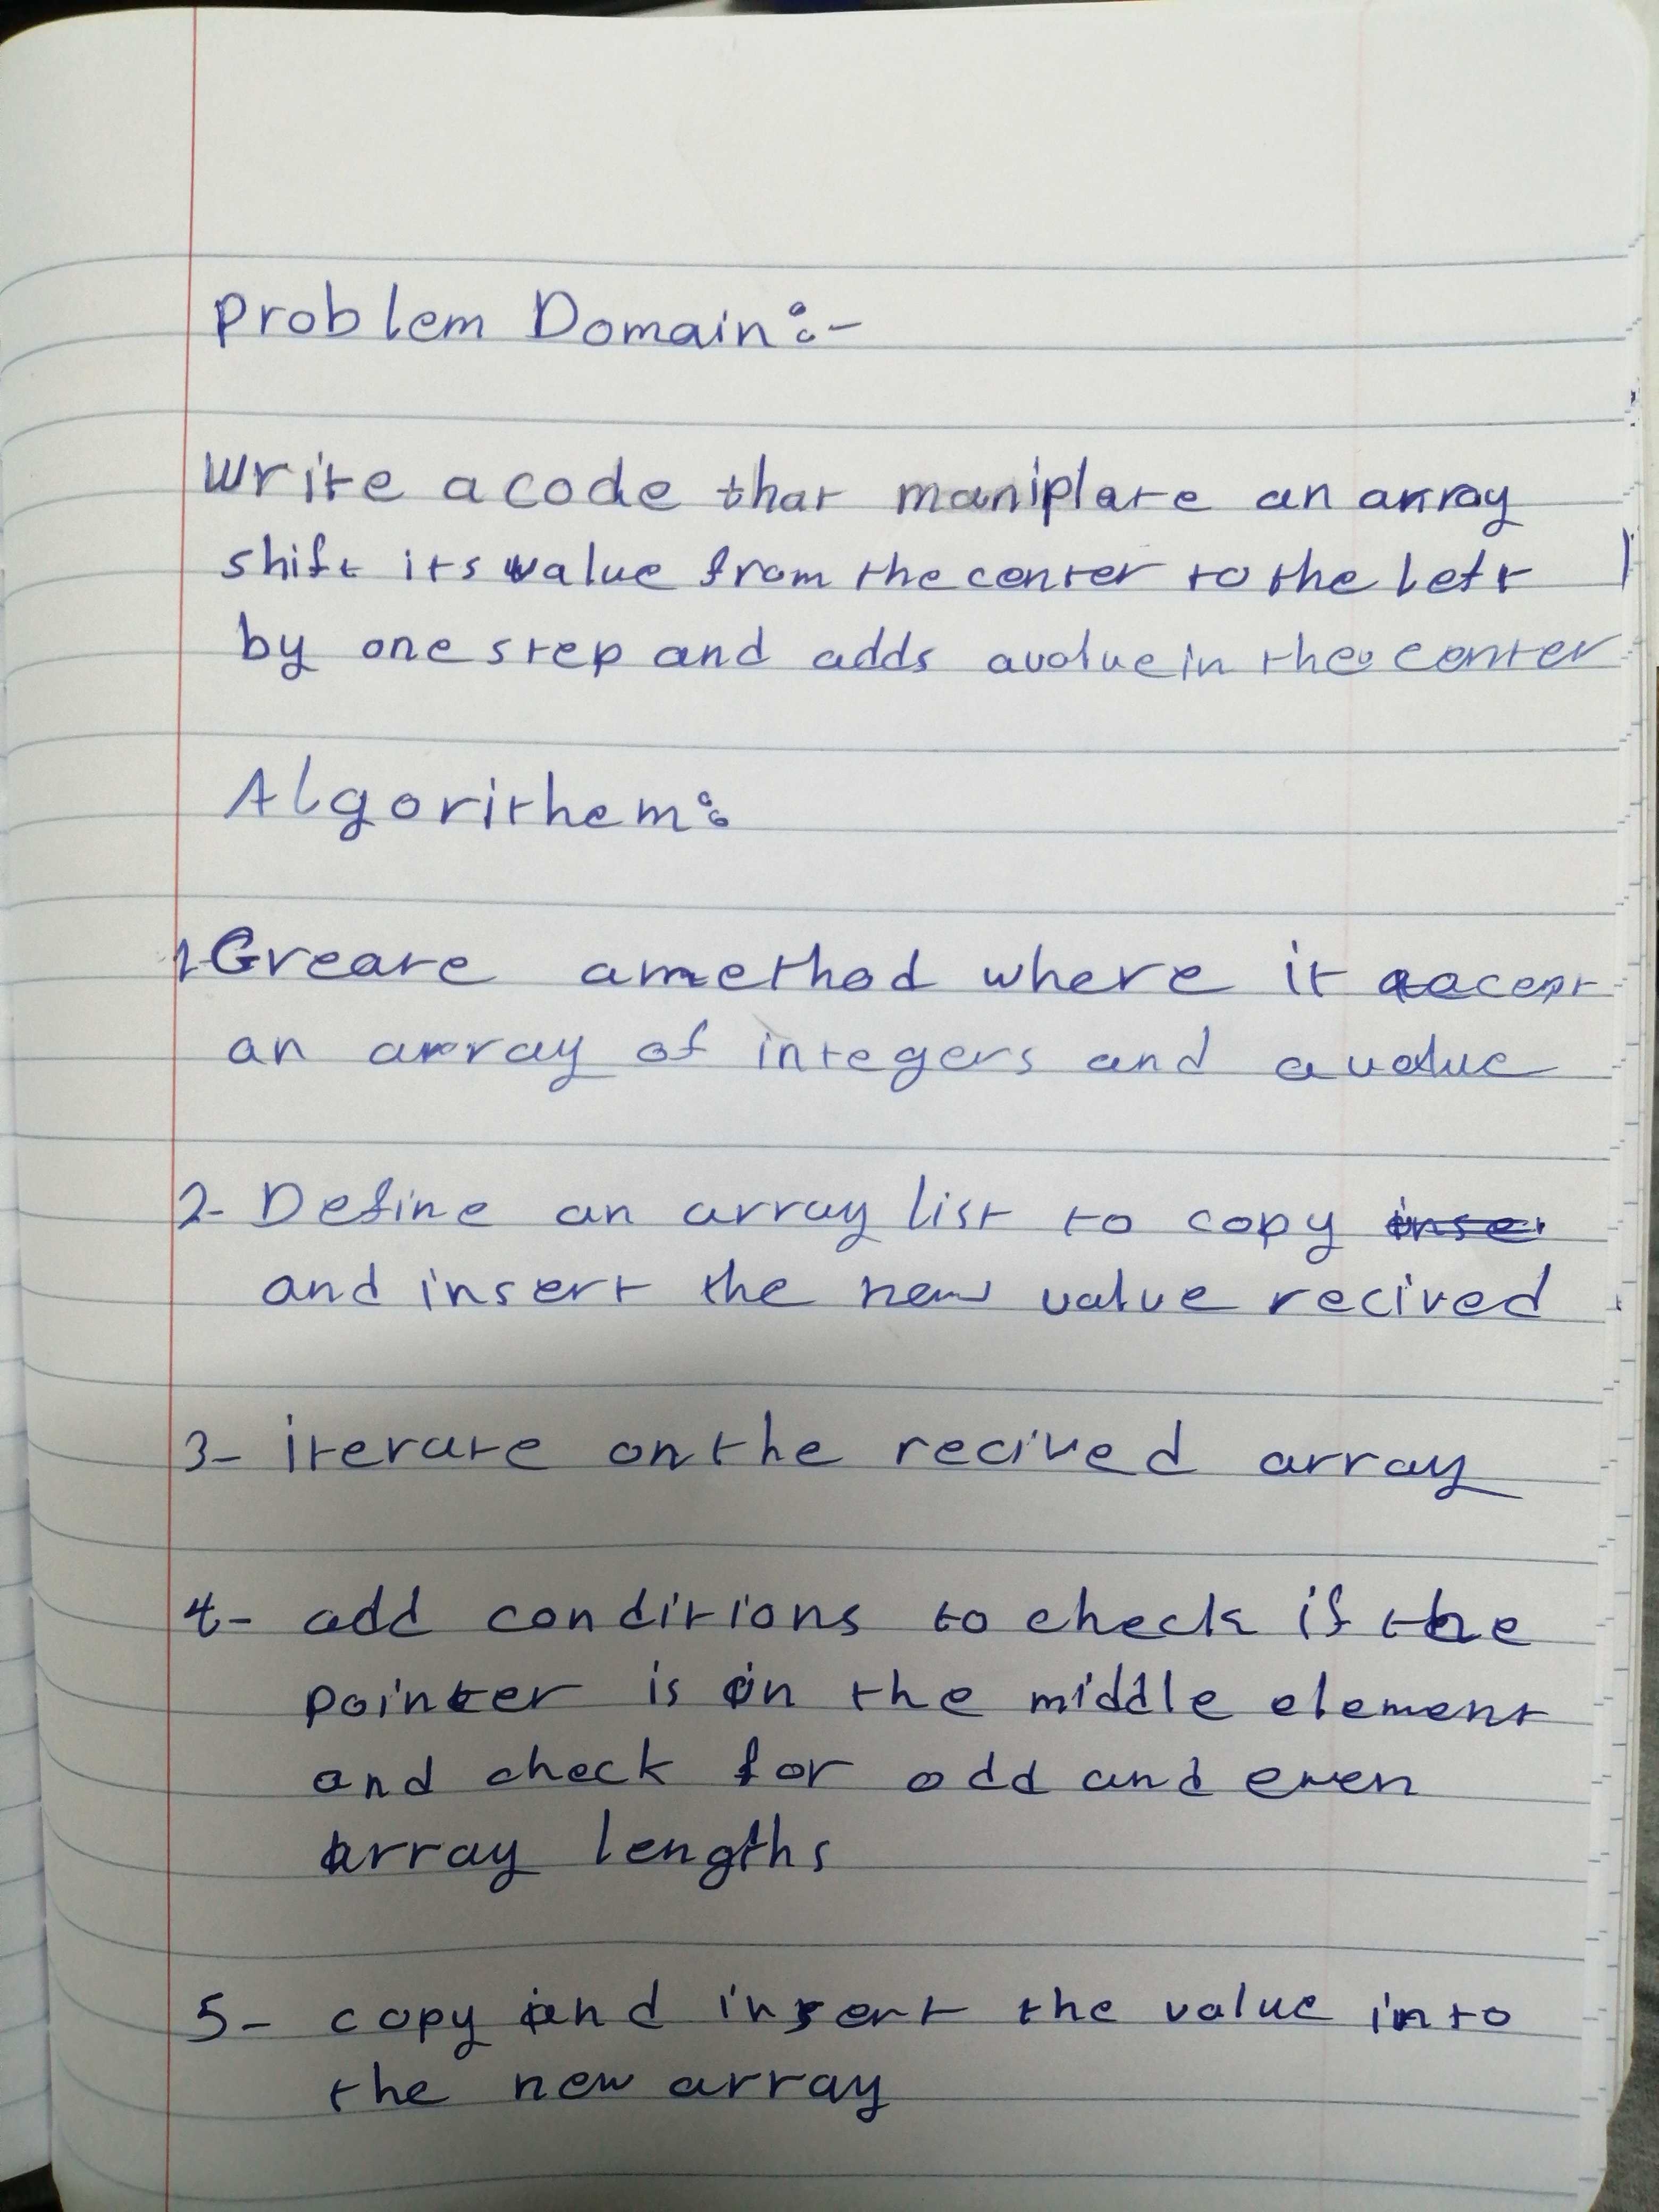 Problem Domain :-
Write a code that maniplate an array
shift its value from the center to the left
by one step and adds a value in the center
Algorithem :
1-Create a method where it accept
an array of integers and a value
2- Define an array list to copy
and insert the new value recived
3- iterate on the recived array
4- add conditions to check if the
pointer is in the middle element
and check for odd and even
array lengths
5- copy and insert the value into
the new array